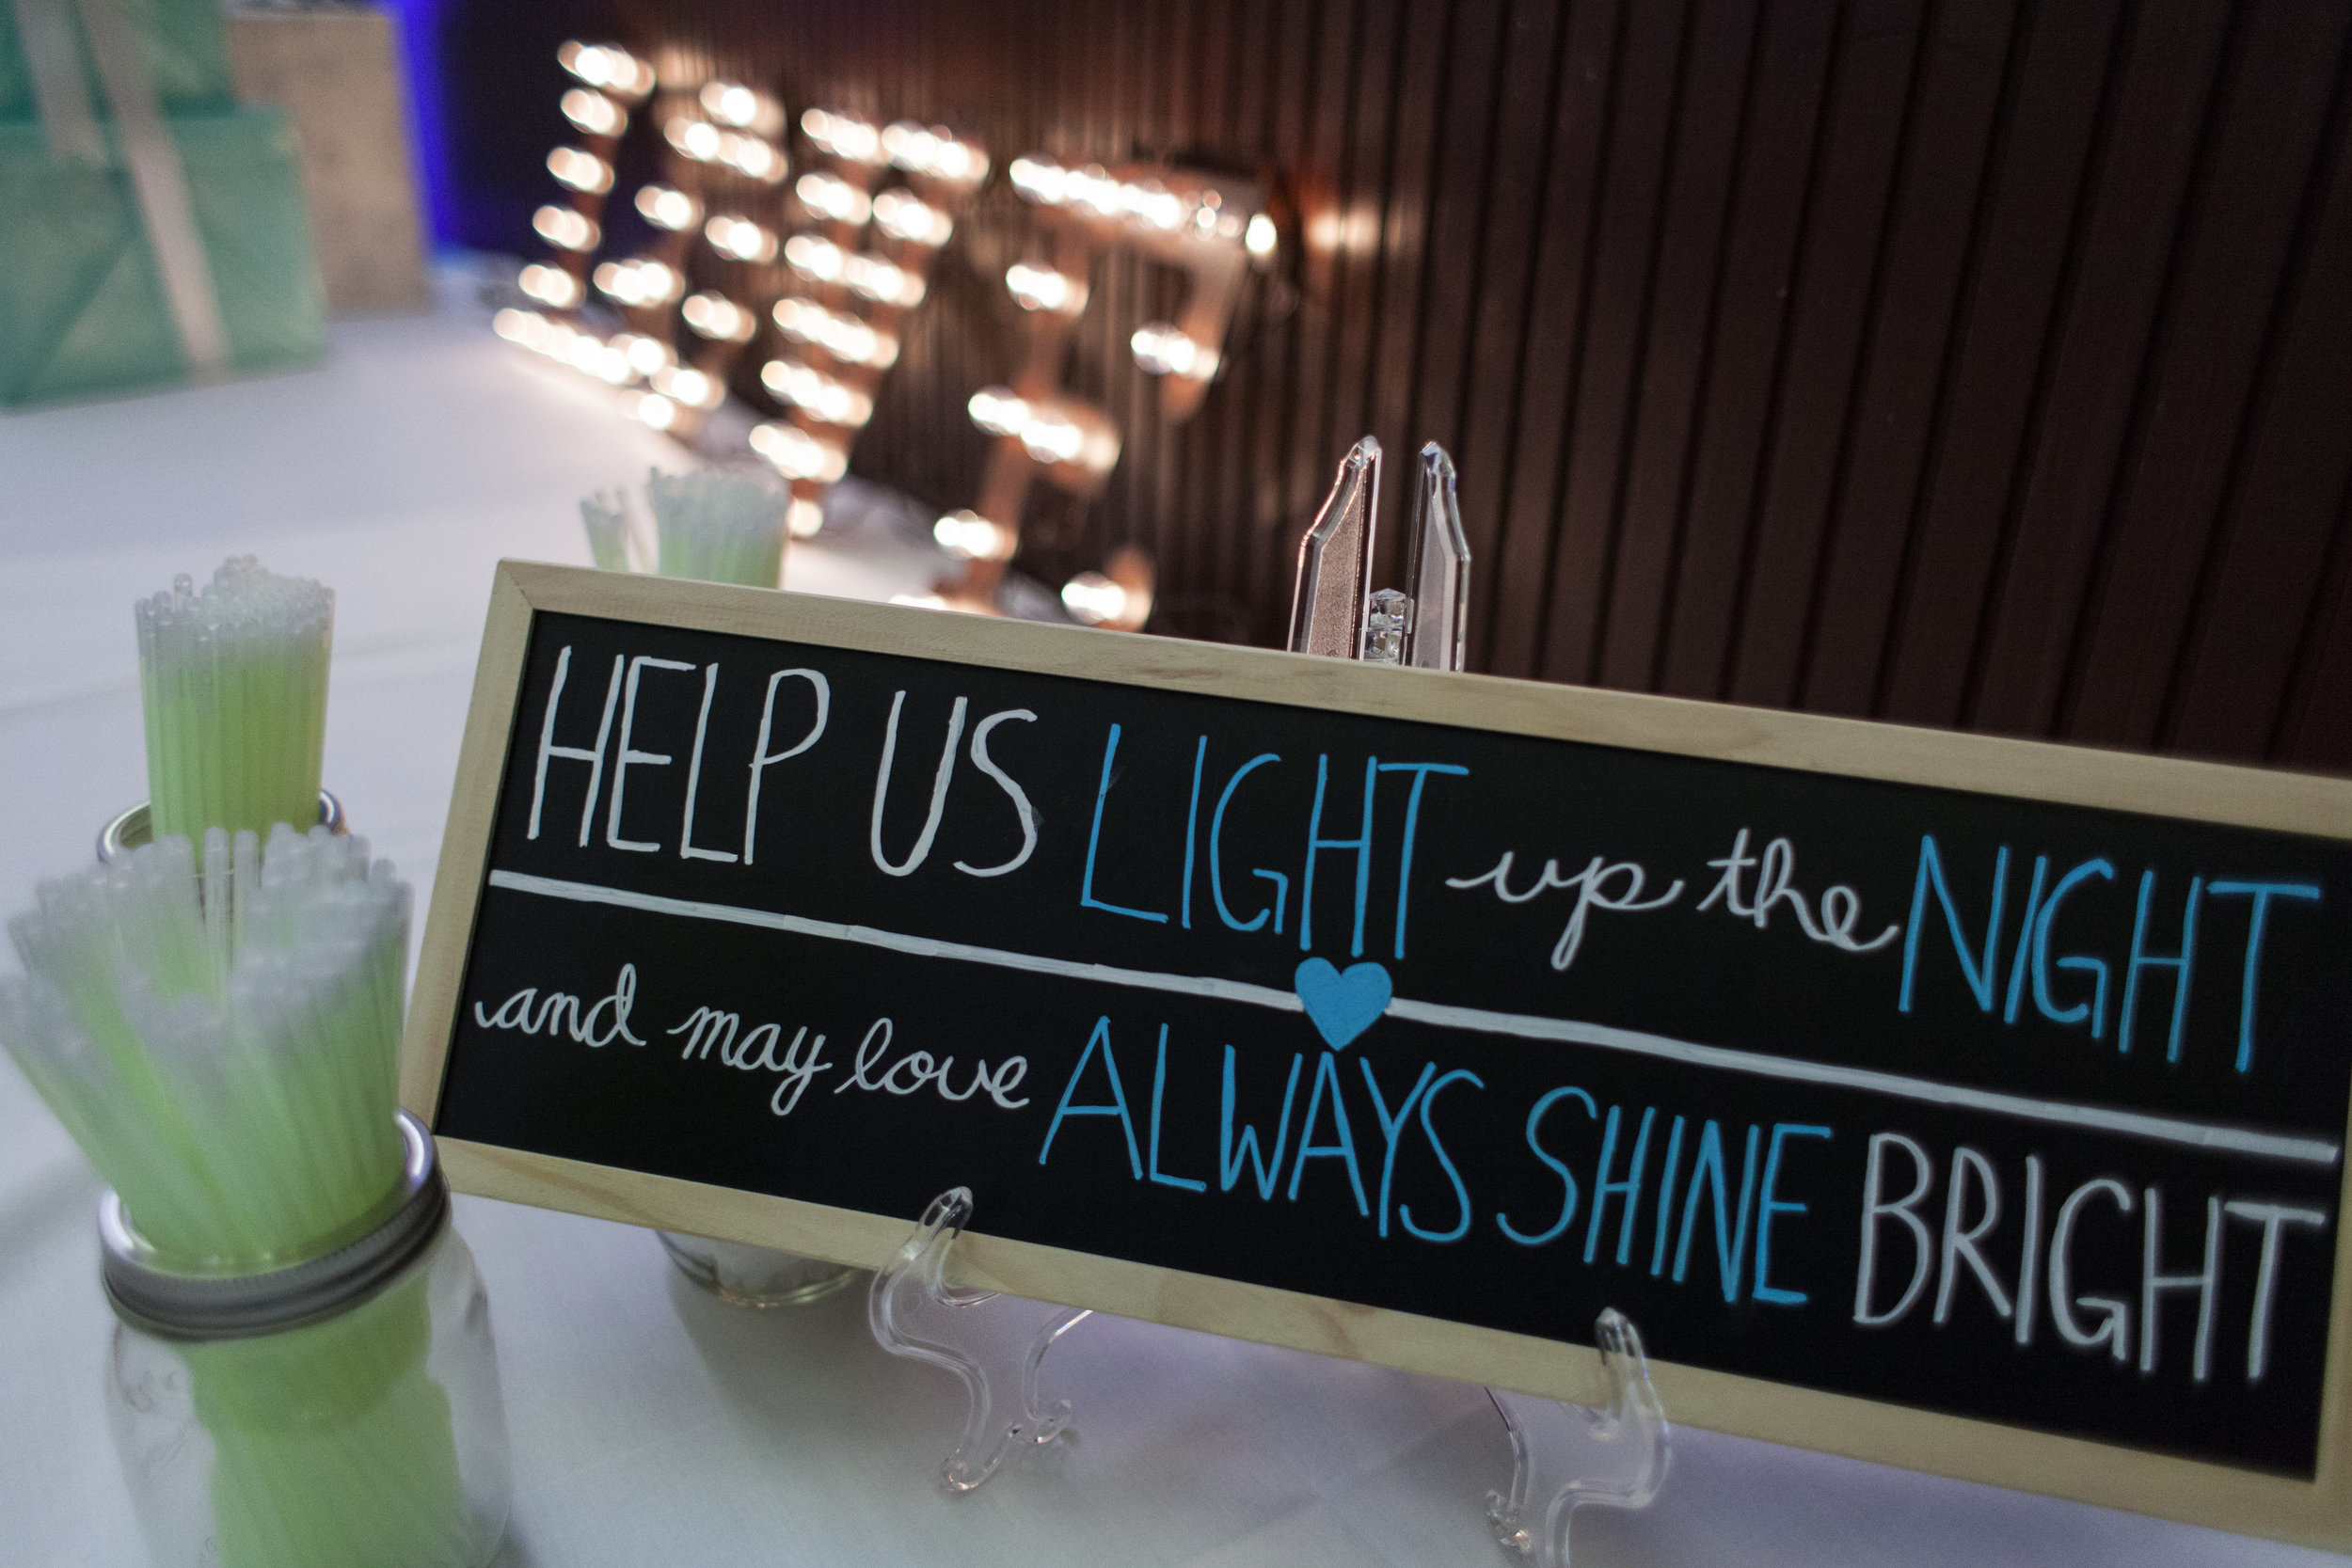 HELP US LIGHT up the NIGHT
and may love ALWAYS SHINE BRIGHT